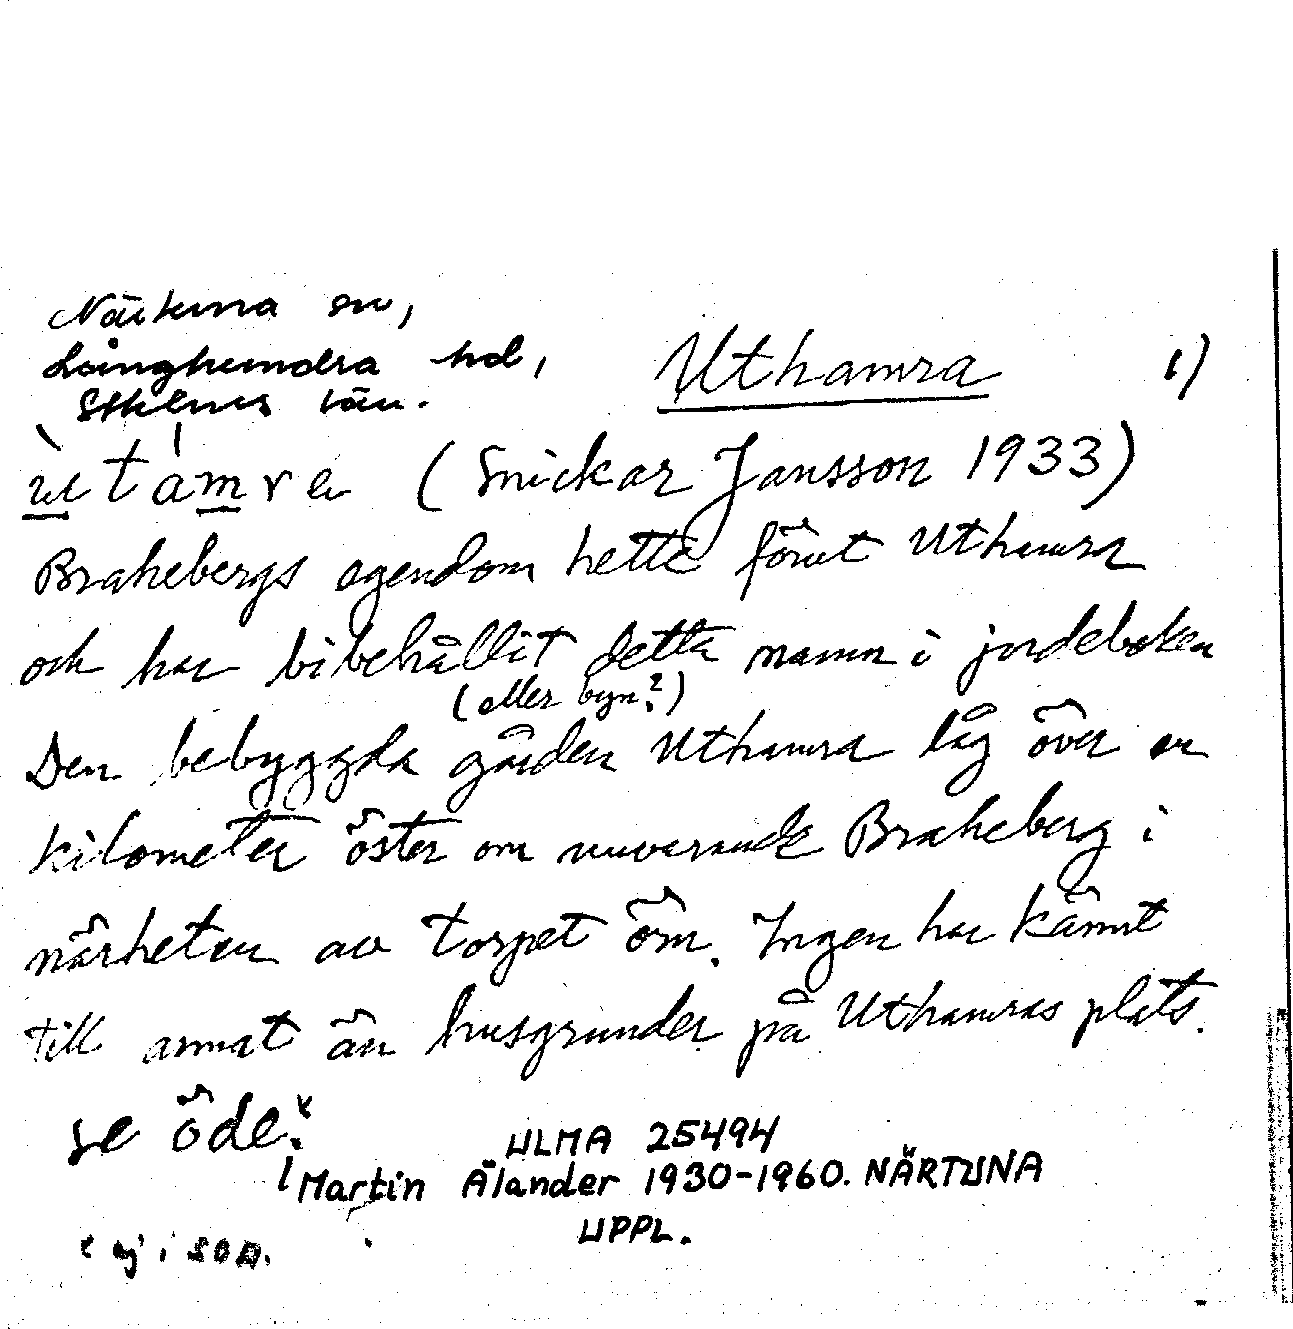 Närtuna sn,
Långhundra hd,
Sthlms län.
Uthamra 1)
ùtámra (Snickar Jansson 1933)
Brahebergs egendom hette förut Uthamra
och har bibehållit detta namn i jordeboken
(eller byn?)
Den bebyggda gården Uthamra låg över en
kilometer öster om nuvarande Braheberg i
närheten av torpet öm. Ingen har kännt
till annat än husgrunder på Uthamras plats.
se öde.
ULMA 25494
Martin Älander 1930-1960. NÄRTUNA
UPPL.
ej i SOA.